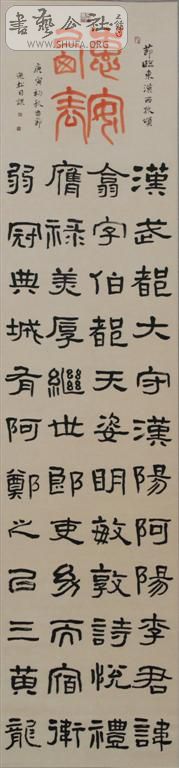 書藝公社
WWW.SHUFA.ORG
節臨東漢西狹頌
漢武都大守漢陽阿陽李君諱
翕字伯都天姿明敏敦詩悅禮
膺祿美厚繼世郎吏幼而宿衛
弱冠典城有阿鄭之㠯三黃龍
庚寅初秋